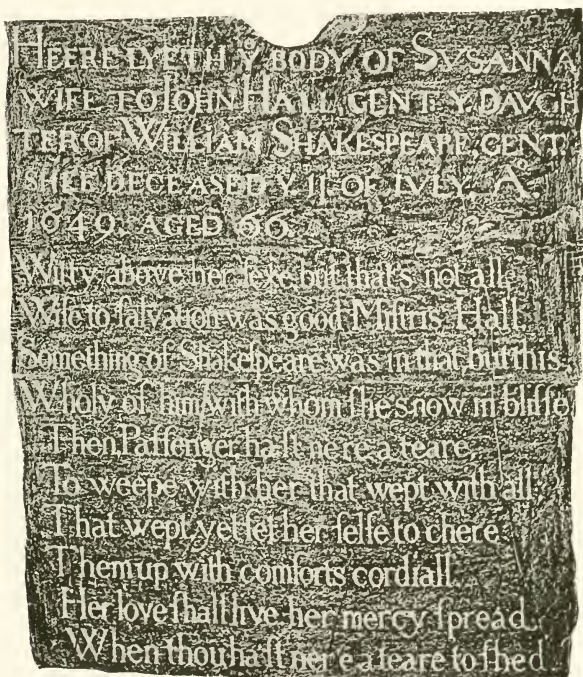 HEERE LYETH Yͤ BODY OF SVSANNA
WIFE TO IOHN HALL, GENT: Yͤ DAVGH
TER OF WILLIAM SHAKESPEARE, GENT:
SHEE DECEASED Yͤ 11ͭͪ OF IVLY. Aº
1649, AGED 66.
Witty above her sexe, but that's not all,
Wiſe to ſalvation was good Miſtris Hall,
Something of Shakeſpeare was in that, but this
Wholy of him with whom ſhe's now in bliſſe.
Then, Paſſenger, ha'ſt ne're a teare,
To weepe with her that wept with all;
That wept, yet ſet her ſelfe to chere
Them up with comforts cordiall.
Her love ſhall live, her mercy ſpread,
When thou ha'ſt ner'e a teare to ſhed.